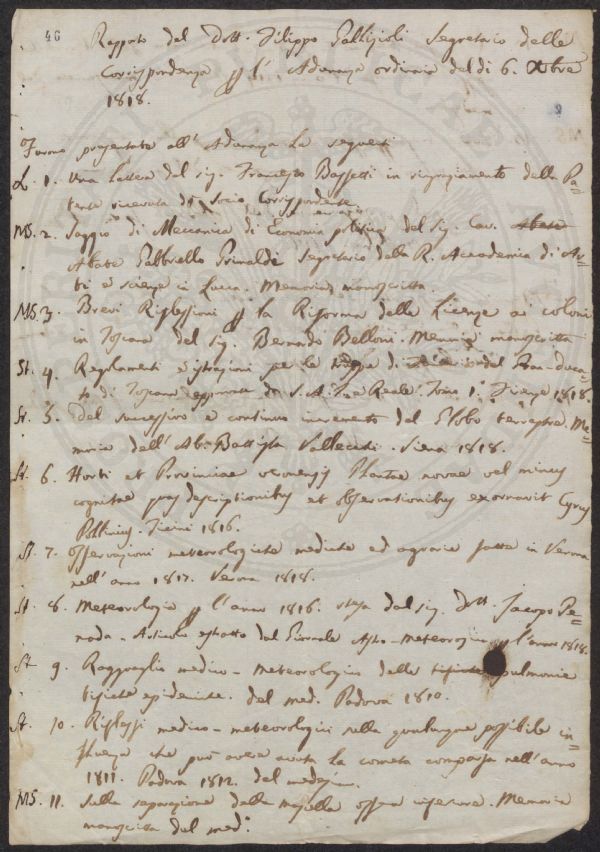 46
Rapporto del Dott. Filippo Gallizioli Segretario delle
Corrispondenze per l'Adunanza ordinaria del dì 6. Xbre
1818.
2
Furono presentate all'Adunanza le seguenti
L. 1. Una Lettera del sig. Francesco Bassetti in ringraziamento della Pa=
tente ricevuta di Socio Corrispondente.
MS. 2. Saggio di Meccanica di Economia politica del Sig. Cav. Abate
Abate Gabbriello Grimaldi Segretario della R. Accademia di Ar=
ti e scienze in Lucca. Memoria manoscritta.
MS. 3. Brevi Riflessioni per la Riforma delle Licenze ai coloni
in Toscana del sig. Bernardo Belloni. Memoria manoscritta
St. 4. Regolamenti e istruzioni per le di del Gran-duca=
to di Toscana approvate da S. A. I. e Reale. Tomo 1º Firenze 1818.
St. 5. Del successivo e continuo incremento del Globo terrestre. Me=
moria dell'Ab. Battista Vallecchi. Siena 1818.
St. 6. Horti et Provinciae veronensis Plantae novae vel minus
cognitae quas descriptionibus et observationibus exornavit Cyrus
Pollinius. Ticini 1816.
St. 7. Osservazioni meteorologiche mediche ed agrarie fatte in Verona
nell'anno 1817. Verona 1818.
St. 8. Meteorologia per l'anno 1816. stesa dal sig. Dott. Jacopo Pe=
nada. Articolo estratto dal Giornale Astro-Meteorologico per l'anno 1818.
St. 9. Ragguaglio medico-meteorologico delle pulmonie
tifiche epidemiche. del med. Padova 1810.
St. 10. Riflessi medico-meteorologici sulla qualunque possibile in=
fluenza che può avere avuta la cometa comparsa nell'anno
1811. Padova 1812. del medesimo.
MS. 11. Sulla separazione della mascella ossea inferiore. Memoria
manoscritta del med.º